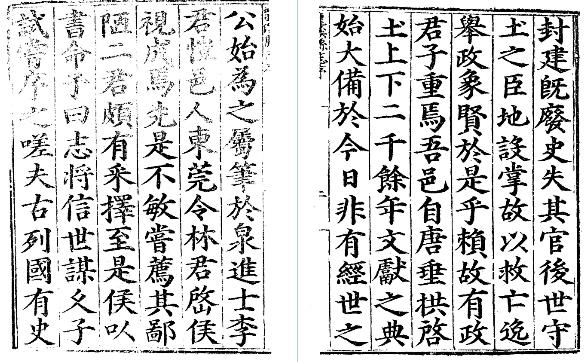 封建旣廢史失其官後世守
土之臣地設掌故以救亡逸
舉政象賢於是乎賴故有政
君子重焉吾邑自唐垂拱啓
土上下二千餘年文獻之典
始大備於今日非有經世之
公始為之屬筆於泉進士李
君性邑人東莞令林君啓侯
視成焉先是不敏嘗薦其鄙
陋二君頗有采擇至是侯以
書命予曰志將信世謀文子
試嘗序之嗟夫古列國有史